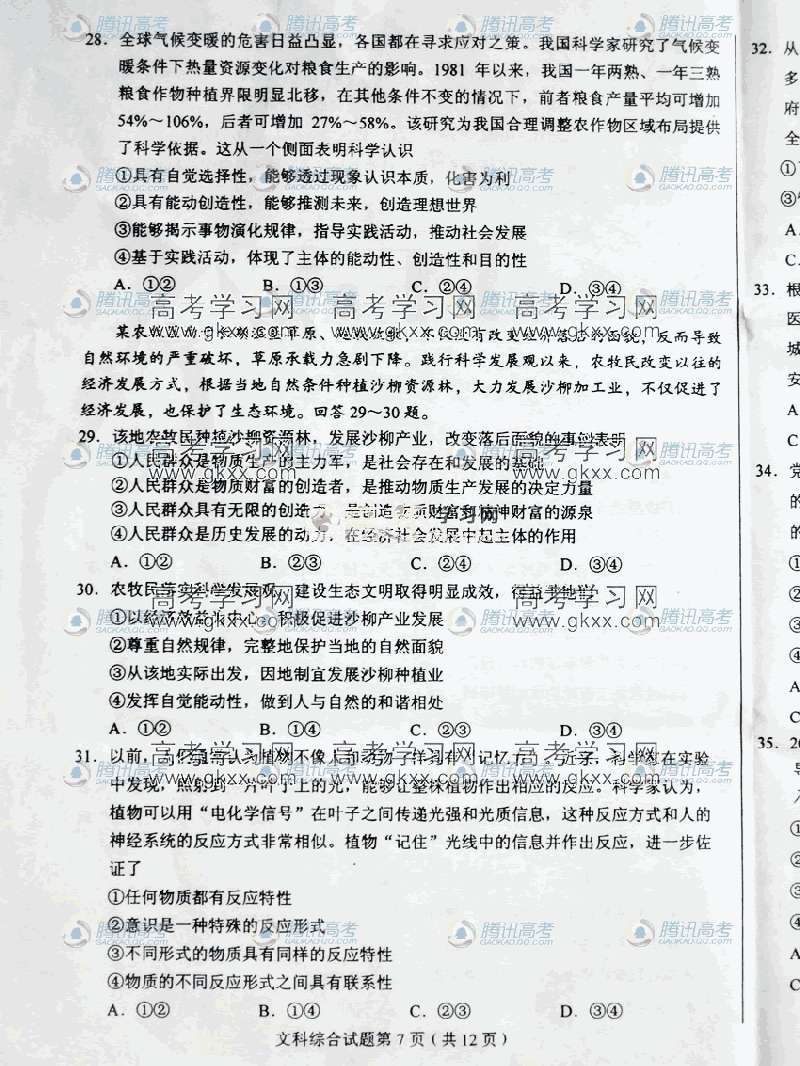 28. 全球气候变暖的危害日益凸显，各国都在寻求应对之策。我国科学家研究了气候变
暖条件下热量资源变化对粮食生产的影响。1981 年以来，我国一年两熟、一年三熟
粮食作物种植界限明显北移，在其他条件不变的情况下，前者粮食产量平均可增加
54%～106%，后者可增加 27%～58%。该研究为我国合理调整农作物区域布局提供
了科学依据。这从一个侧面表明科学认识
①具有自觉选择性，能够透过现象认识本质，化害为利
②具有能动创造性，能够推测未来，创造理想世界
③能够揭示事物演化规律，指导实践活动，推动社会发展
④基于实践活动，体现了主体的能动性、创造性和目的性
A. ①② B. ①③ C. ②④ D. ③④
某农 草原、 不仅没有改变经济落后的面貌，反而导致
自然环境的严重破坏，草原承载力急剧下降。践行科学发展观以来，农牧民改变以往的
经济发展方式，根据当地自然条件种植沙柳资源林，大力发展沙柳加工业，不仅促进了
经济发展，也保护了生态环境。回答 29～30 题。
29. 该地农牧民种植沙柳资源林，发展沙柳产业，改变落后面貌的事例表明
①人民群众是物质生产的主力军，是社会存在和发展的基础
②人民群众是物质财富的创造者，是推动物质生产发展的决定力量
③人民群众具有无限的创造力，是创造物质财富和精神财富的源泉
④人民群众是历史发展的动力，在经济社会发展中起主体的作用
A. ①② B. ②③ C. ②④ D. ③④
30. 农牧民落实科学发展观，建设生态文明取得明显成效，得益于他们
①以经济效益为中心，积极促进沙柳产业发展
②尊重自然规律，完整地保护当地的自然面貌
③从该地实际出发，因地制宜发展沙柳种植业
④发挥自觉能动性，做到人与自然的和谐相处
A. ①② B. ①④ C. ②③ D. ③④
31. 以前，人们通常认为植物不像人和动物一样具有记忆能力。近来，科学家在实验
中发现，照射到一片叶子上的光，能够让整株植物作出相应的反应。科学家认为，
植物可以用“电化学信号”在叶子之间传递光强和光质信息，这种反应方式和人的
神经系统的反应方式非常相似。植物“记住”光线中的信息并作出反应，进一步佐
证了
①任何物质都有反应特性
②意识是一种特殊的反应形式
③不同形式的物质具有同样的反应特性
④物质的不同反应形式之间具有联系性
A. ①② B. ①④ C. ②③ D. ③④
文科综合试题第 7 页（共 12 页）
32. 从
多
府
全
①
③
A.
C.
33. 根
医
城
安
A
C
34. 党
的
的
①
②
③
④
A
C
35. 20
导
①
②
③
④
A
C
腾讯高考
GAOKAO.QQ.COM
高考学习网
www.gkxx.com